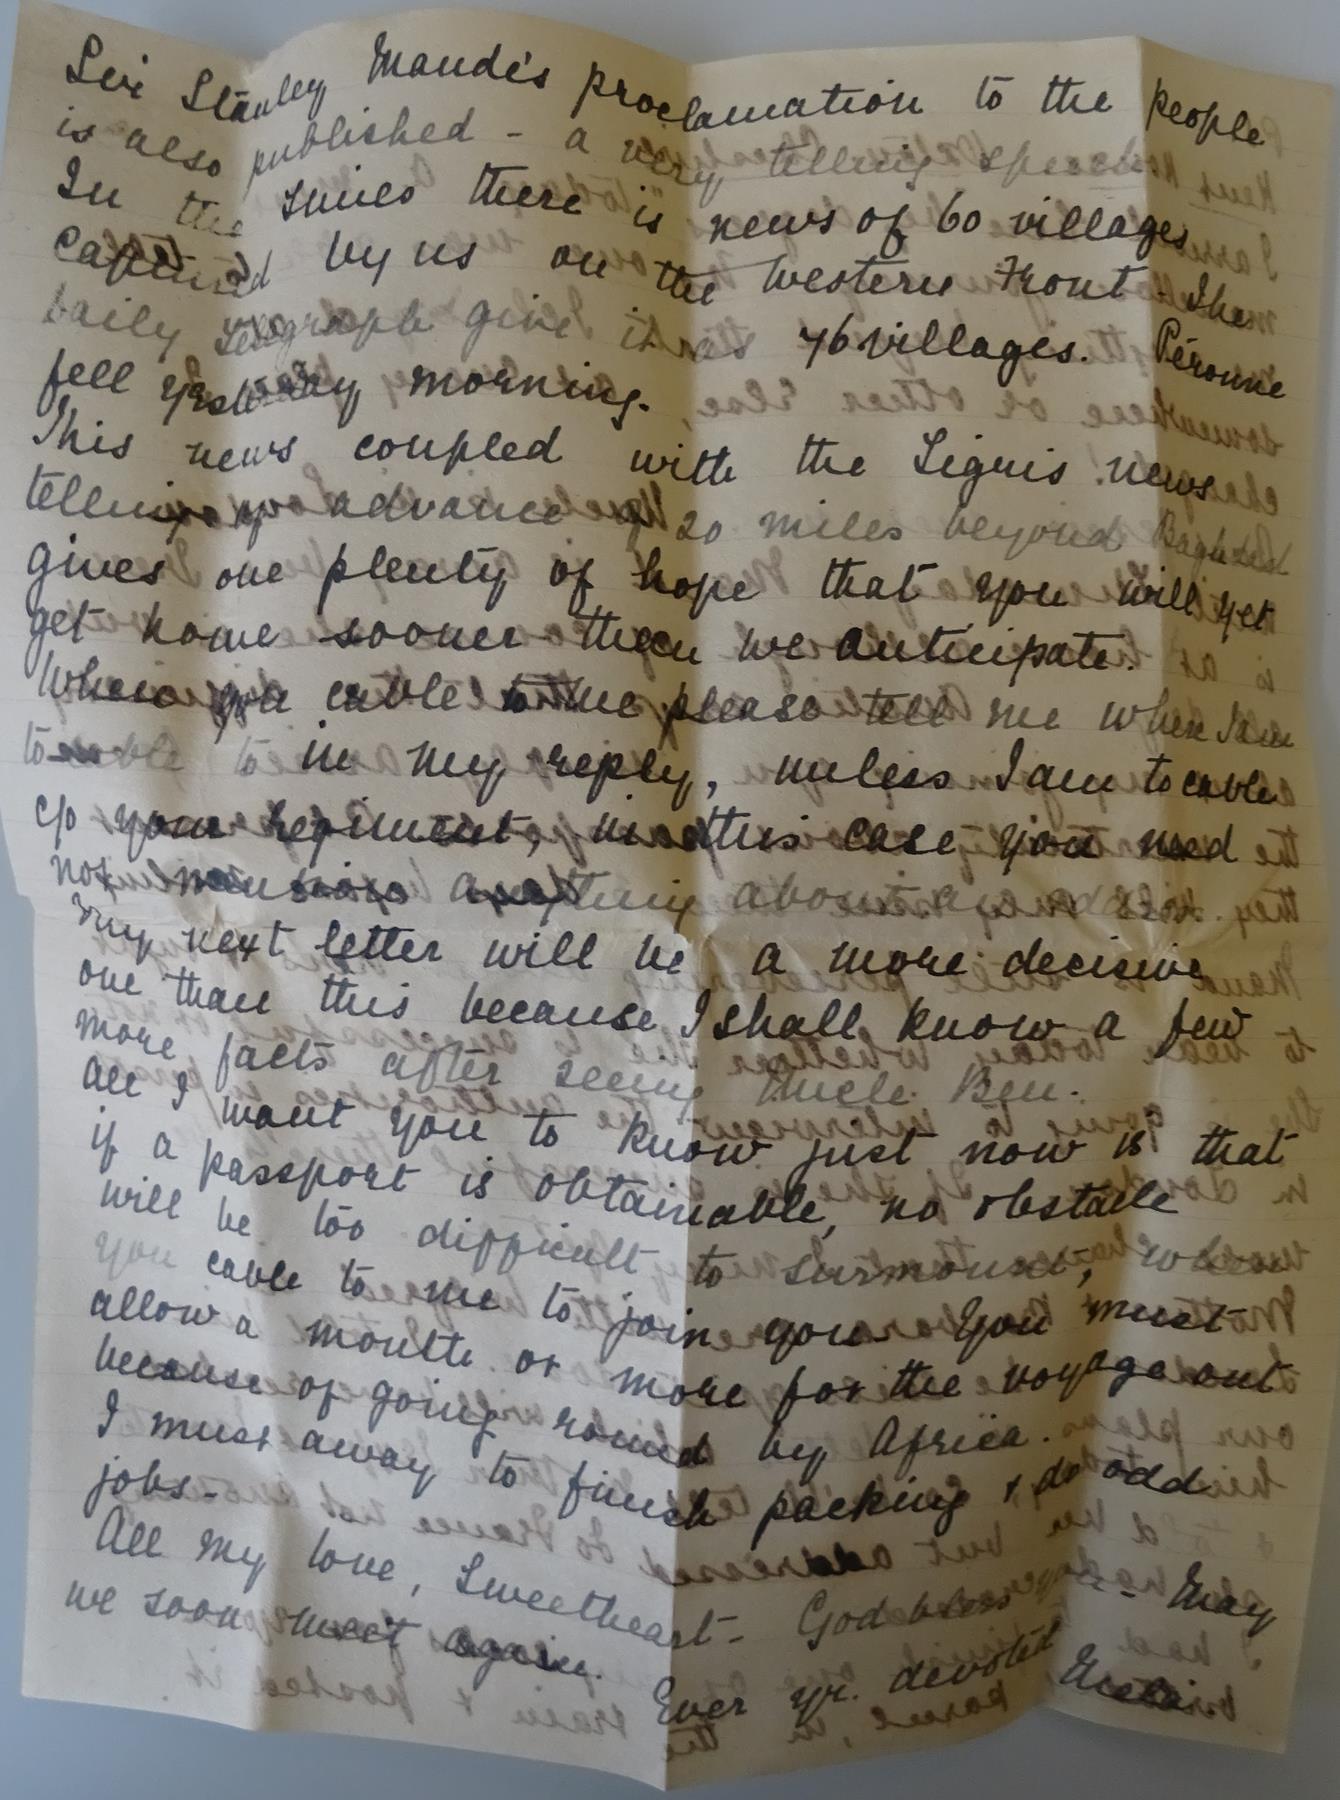 Sir Stanley Maude's proclamation to the people
is also published - a very telling speech
In the Times there is news of 60 villages
captured by us on the Western Front. The
Daily Telegraph give it as 76 villages. Péronne
fell yesterday morning.
This news coupled with the Tigris news
telling of advance of 20 miles beyond Baghdad
gives one plenty of hope that you will yet
get home sooner than we anticipate.
When you cable to me please tell me where I am
to cable to in my reply, unless I am to cable
c/o your Regiment, in this case you need
not mention anything about address.
My next letter will be a more decisive
one than this because I shall know a few
more facts after seeing Uncle Ben.
All I want you to know just now is that
if a passport is obtainable, no obstacle
will be too difficult to surmount, when
you cable to me to join you. You must
allow a month or more for the voyage out
because of going round by Africa.
I must away to finish packing & do odd
jobs.
All my love, Sweetheart - God bless you - May
we soon meet again.
Ever yr. devoted